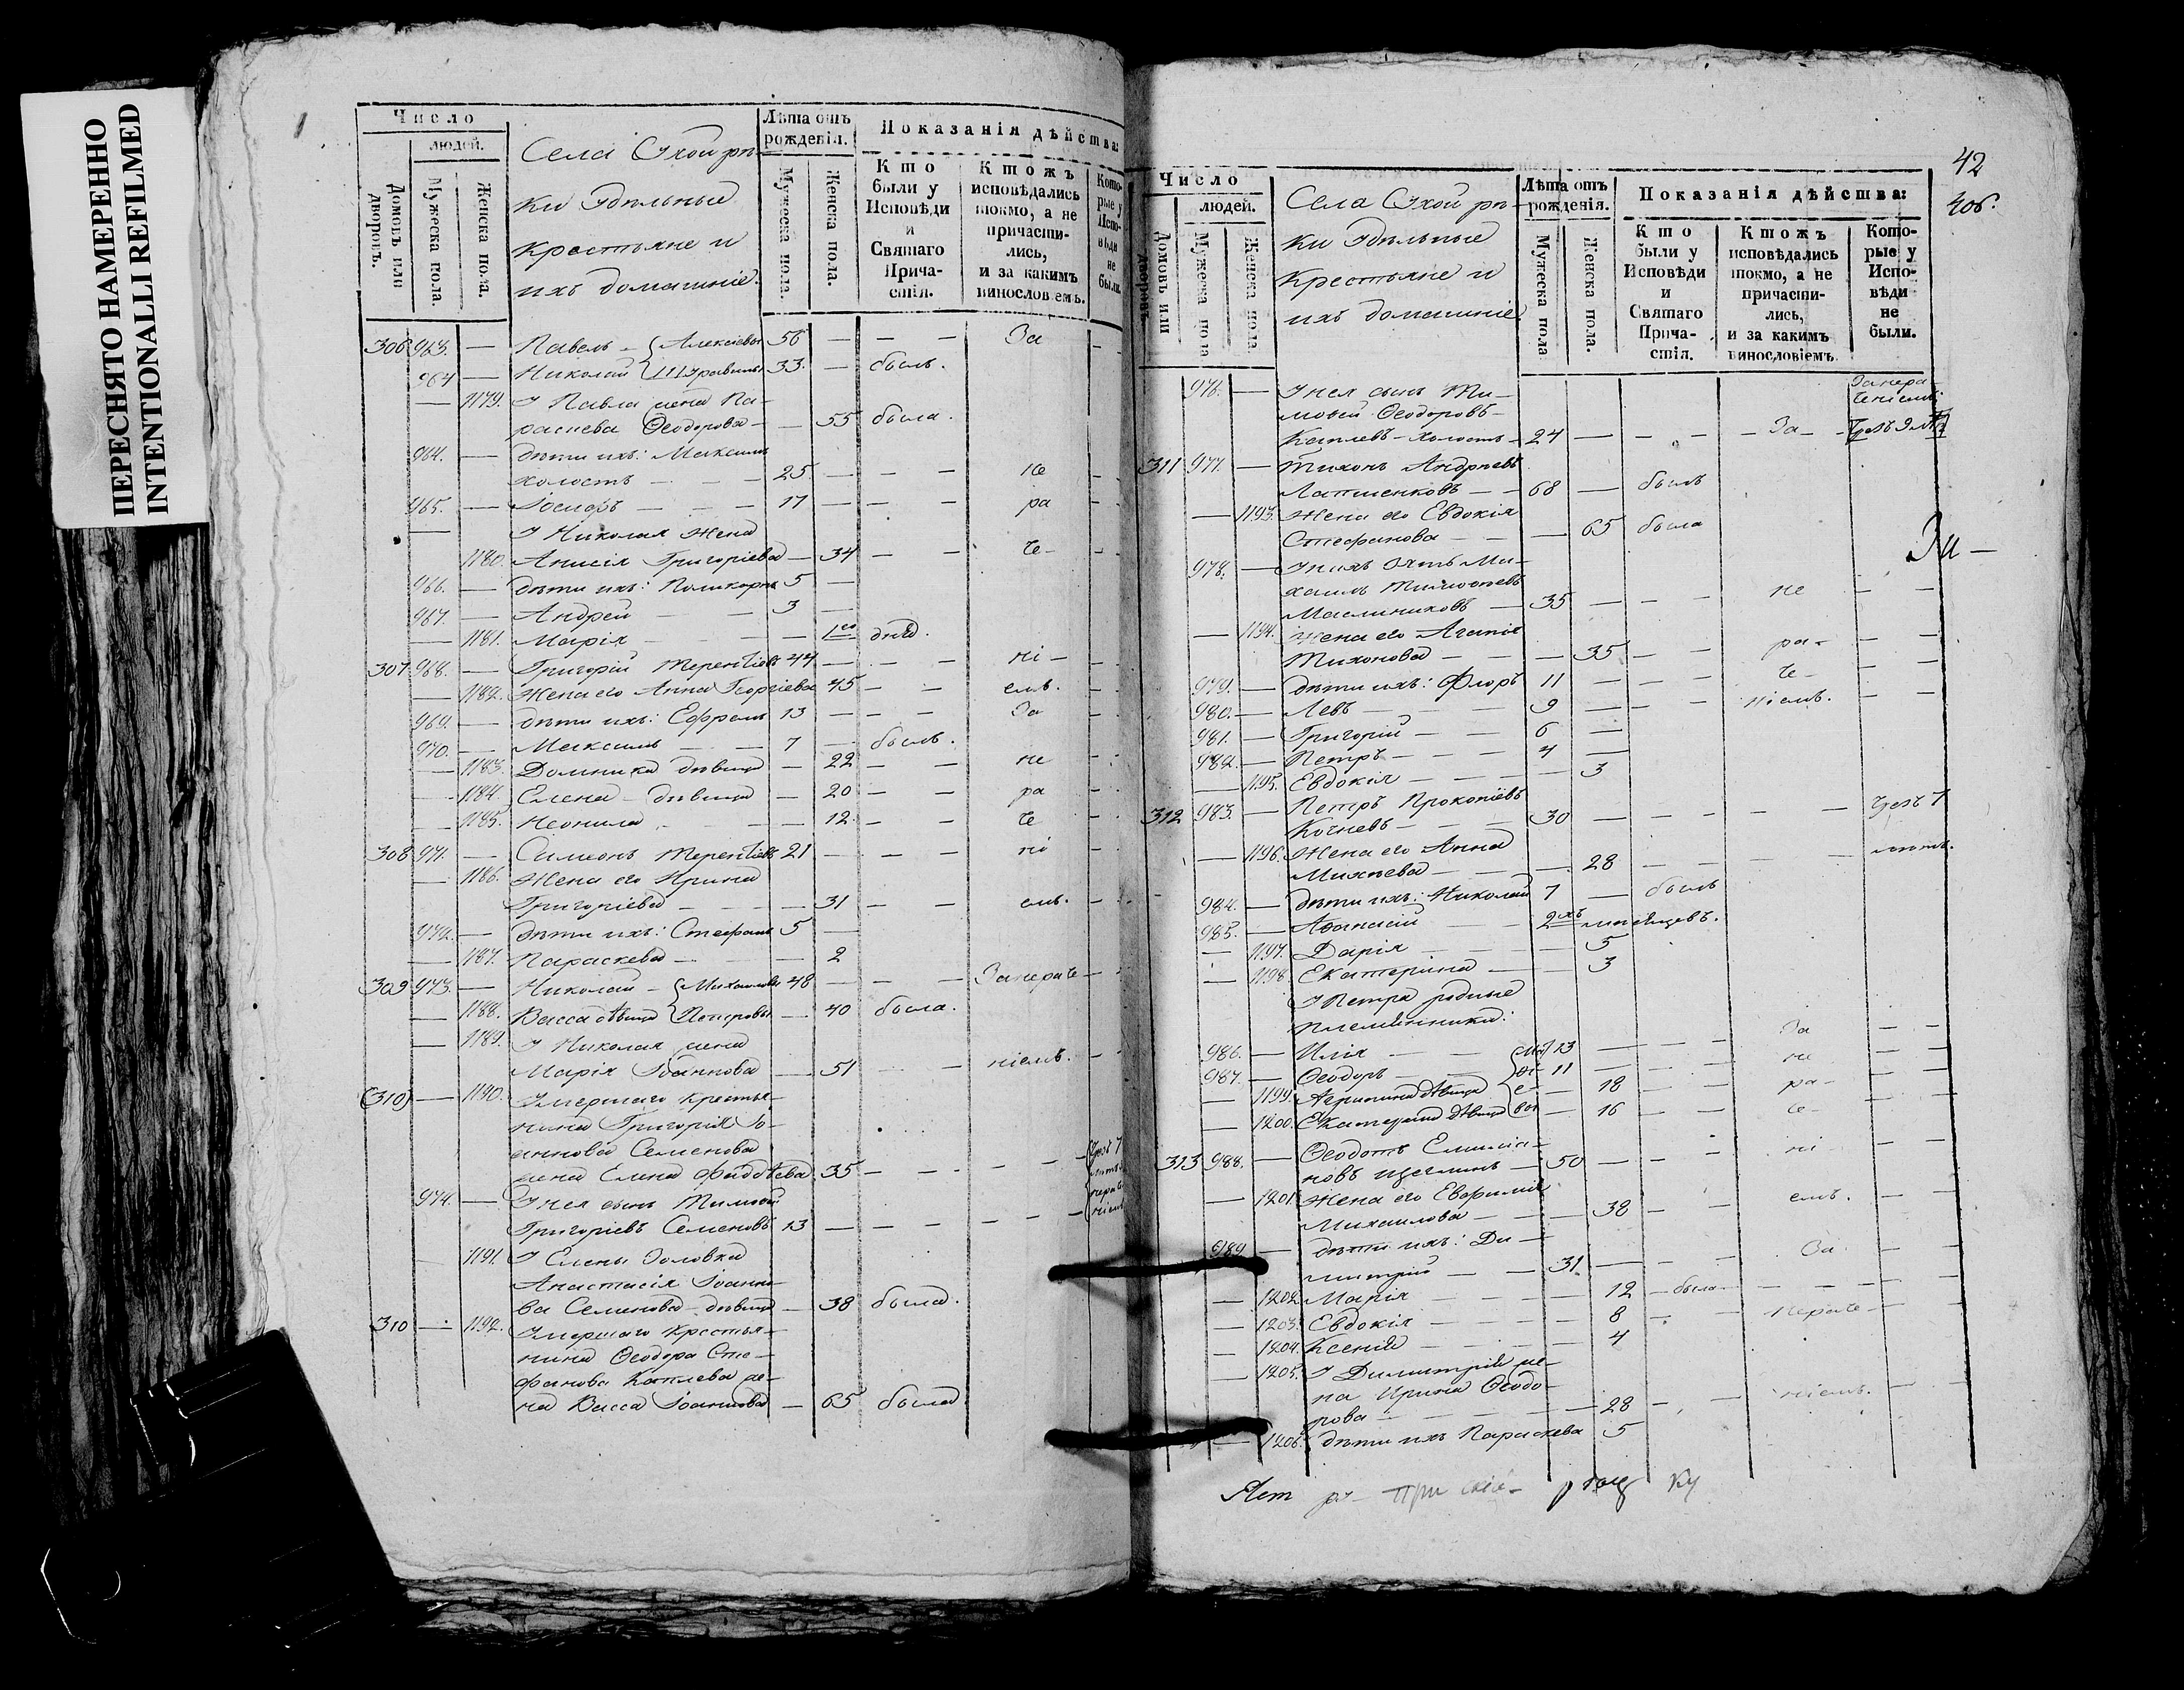 ПЕРЕСНЯТО НАМЕРЕННО
INTENTIONALLI REFILMED
Число
людей.
Домовъ или дворовъ.
Мужеска пола.
Женска пола.
Села Сухой рѣ-
ки Удѣльные
крестьяне и
ихъ домашніе.
Лѣта отъ рожденія.
Мужеска пола.
Женска пола.
Показанія дѣйства:
Кто были у Исповѣди и Святаго Причастія.
Ктожъ исповѣдались токмо, а не причастились, и за какимъ винословіемъ.
Которые у Исповѣди не были.
306 963. — Павелъ { Алексіевы 56 — — — За
964 — Николай { 33. — былъ.
— 1179. У Павла жена Па-
раскева Ѳеодорова — — 55 была.
964. — дѣти ихъ: Максимъ
холостъ — — — 25. — — — не
965. — Іосифъ — — — 17 — — — ра
— У Николая жена
1180. Анисія Григоріева — 34 — — че-
966. — дѣти ихъ: Поликарпъ 5 —
967. — Андрей — 3 —
— 1181. Марія — — 1го дня.
307 968. — Григорій Терентіевъ 44 — — — ні-
— 1182. Жена его Анна Георгіева 45 — — емъ.
969. — дѣти ихъ: Ефремъ 13 — — — За
970. — Максимъ — — 7 — былъ.
— 1183. Домника дѣвица — 22 — — не
— 1184. Елена — дѣвица — 20 — — ра
— 1185. Неонила — — 12. — — че
308 971. — Симеонъ Терентіевъ 21 — — — ні
— 1186. Жена его Ирина
Григоріева — — — 31 — — емъ.
972. — дѣти ихъ: Стефанъ 5 —
— 1187. Параскева — — — 2
309 973. — Николай — { Михайловы 48 — — — Занераче-
— 1188. Васса дѣвица { Петровы — 40 была.
— 1189. У Николая жена
Марія Іоаннова — 51 — — ніемъ.
(310) — 1190. Умершаго крестья-
нина Григорія Іо-
аннова Семенова
жена Елена Ѳадѣева 35 — — — — —
974. — У нея сынъ Тимоѳей
Григоріевъ Семеновъ 13 — — — — — —
1191. У Елены Золовка
Анастасія Іоанно-
ва Семенова дѣвица — 38 была.
310 — 1192. Умершаго крестья-
нина Ѳеодора Сте-
фанова Каплева же-
на Васса Іоаннова — 65 была
42
Число
людей.
Домовъ или дворовъ.
Мужеска пола
Женска пола.
Села Сухой рѣ-
ки Удѣльные
Крестьяне и
ихъ домашніе.
Лѣта отъ рожденія.
Мужеска пола
Женска пола.
Показанія дѣйства:
Кто были у Исповѣди и Святаго Причастія.
Ктожъ исповѣдались токмо, а не причастились, и за какимъ винословіемъ.
Которые у Исповѣди не были.
976. — У нея сынъ Ти-
моѳей Ѳеодоровъ
Каплевъ — холостъ — 24 — — — За —
311 977. — Тихонъ Андреевъ
Лапшенковъ — — 68 — былъ
— 1193. Жена его Евдокія
Стефанова — — — 65 была
978. — У нихъ зять Ми-
хаилъ Тимоѳеевъ
Маслниковъ — 35 — — — не — —
— 1194. Жена его Агапія
Тихонова — — — 35 — — ра- — —
979. — дѣти ихъ: Флоръ 11 — — — че- — —
980. — Левъ — — — 9 — — — ніемъ. — —
981. — Григорій — — 6 —
982. — Петръ — — — 4 —
— 1195. Евдокія — — — — 3
312 983. — Петръ Прокопіевъ
Кочневъ — — — 30 — — — — — чрезъ 7
— 1196. Жена его Анна
Михѣева — — — — 28 — — — — лѣтъ.
984. — дѣти ихъ: Николай 7 — былъ
985. — Аѳанасій — — 2хъ мѣсяцевъ.
— 1197. Дарія — — — 5
— 1198. Екатерина — — 3
У Петра родные
племянники:
986. — Илія — — 13 — — — За — —
987. — Ѳеодоръ — — 11 — — — не — —
— 1199. Агрипина дѣвица — 18 — — ра- — —
— 1200. Екатерина дѣвица — 16 — — че- — —
313 988. — Ѳеодотъ Емиліа-
новъ Щеглинъ — 50 — — — ні — —
— 1201. Жена его Евфимія
Михаилова — — — 38 — — емъ. — —
989 — дѣти ихъ: Ди-
митрій — — 31. — — — За — —
— 1202. Марія — — — — 12 — была — — —
— 1203. Евдокія — — — — 8 — — нераче- —
— 1204. Ксенія — — — — 4
— 1205. У Димитрія же-
на Ирина Ѳеодо-
рова — — — — — 28 — — ніемъ. — —
— 1206. дѣти ихъ Параскева 5